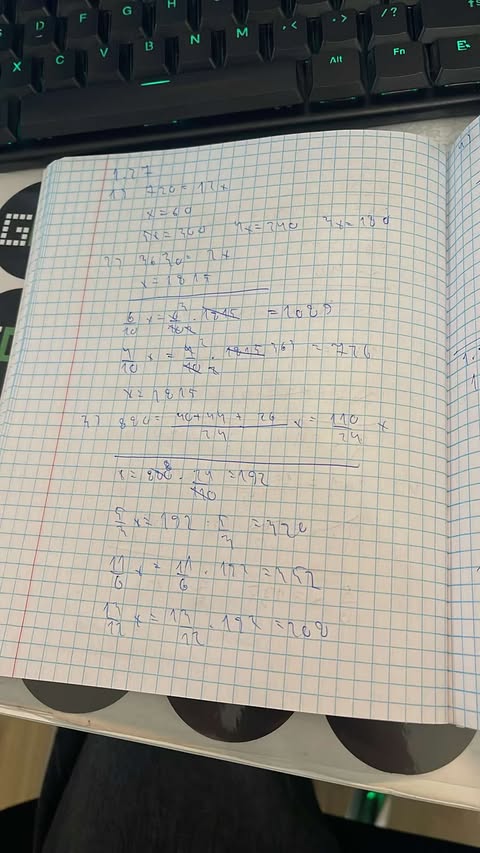 D F G H
X C V B N M , < . > / ?
Alt Fn
G
1.27
1) 720 = 12x
x = 60
5x = 300 4x = 240 3x = 180
2) 3630 = 2x
x = 1815
6/10 x = · 1815 = 1089
4/10 x = 4/10 · 1815 = 726
x = 1815
3) 880 = 40+44+26/24 x = 110/24 x
x = 880 · 24/110 = 192
5/3 x = 192 · 5/3 = 320
11/6 x = 11/6 · 192 = 352
13/12 x = 13/12 · 192 = 208